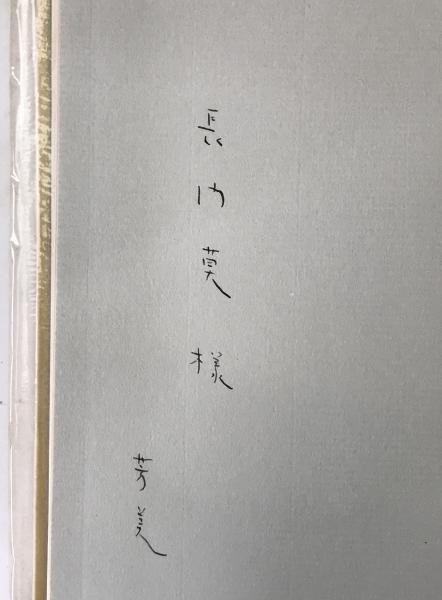 長内英様
芳美